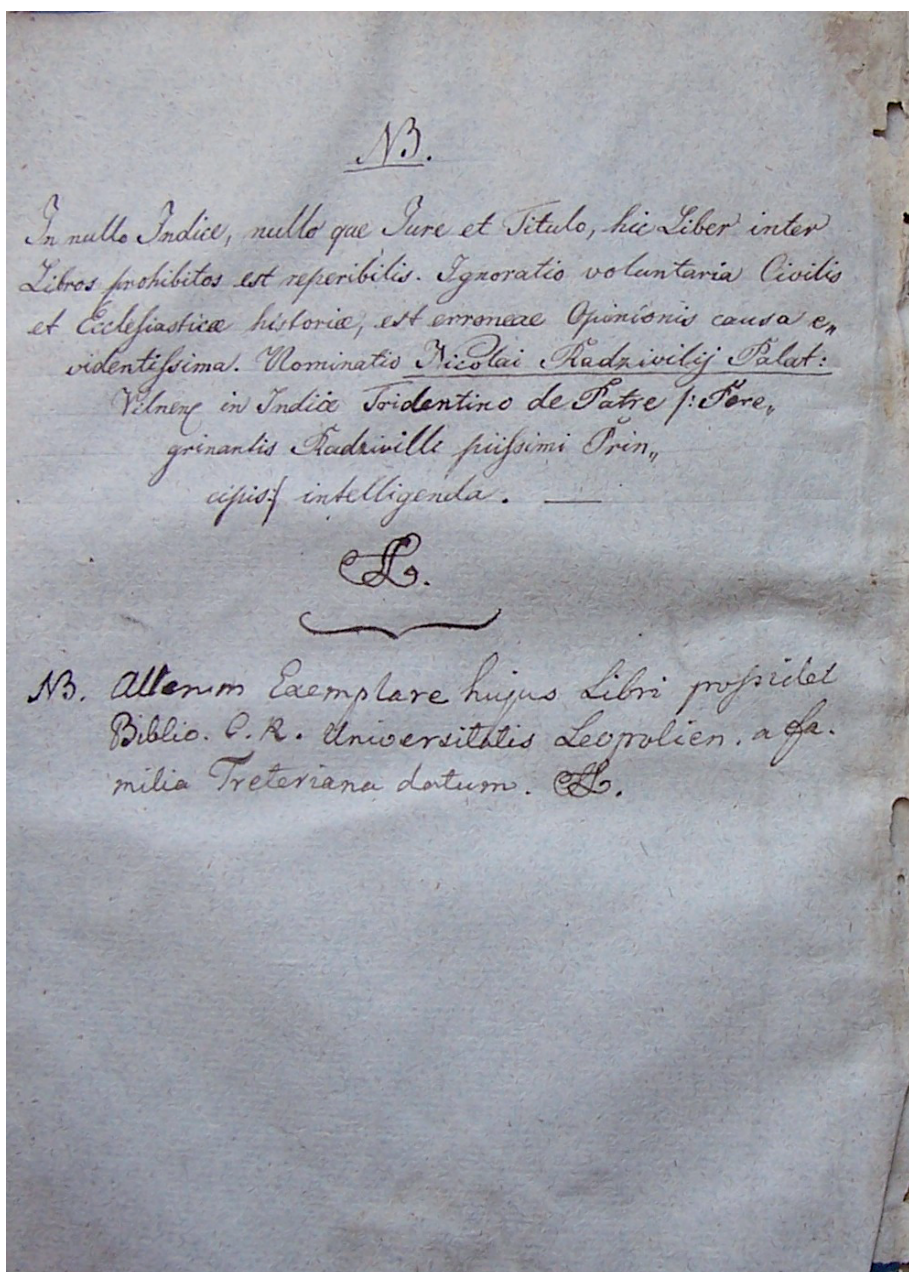 NB.
In nullo Indice, nullo que Jure et Titulo, hic Liber inter
Libros prohibitos est reperibilis. Ignoratio voluntaria Civilis
et Ecclesiasticæ historiæ, est erroneae Opinionis causa e„
videntissima. Nominatio Nicolai Radzivilij Palat:
Vilnen in Indice Tridentino de Patre /: Pere„
grinantis Radziville piissimi Prin„
cipis:/ intelligenda. —
NB. Alterum Exemplare hujus Libri possidet
Biblio. C. R. Universitatis Leopolien. a fa-
milia Treteriana datum.